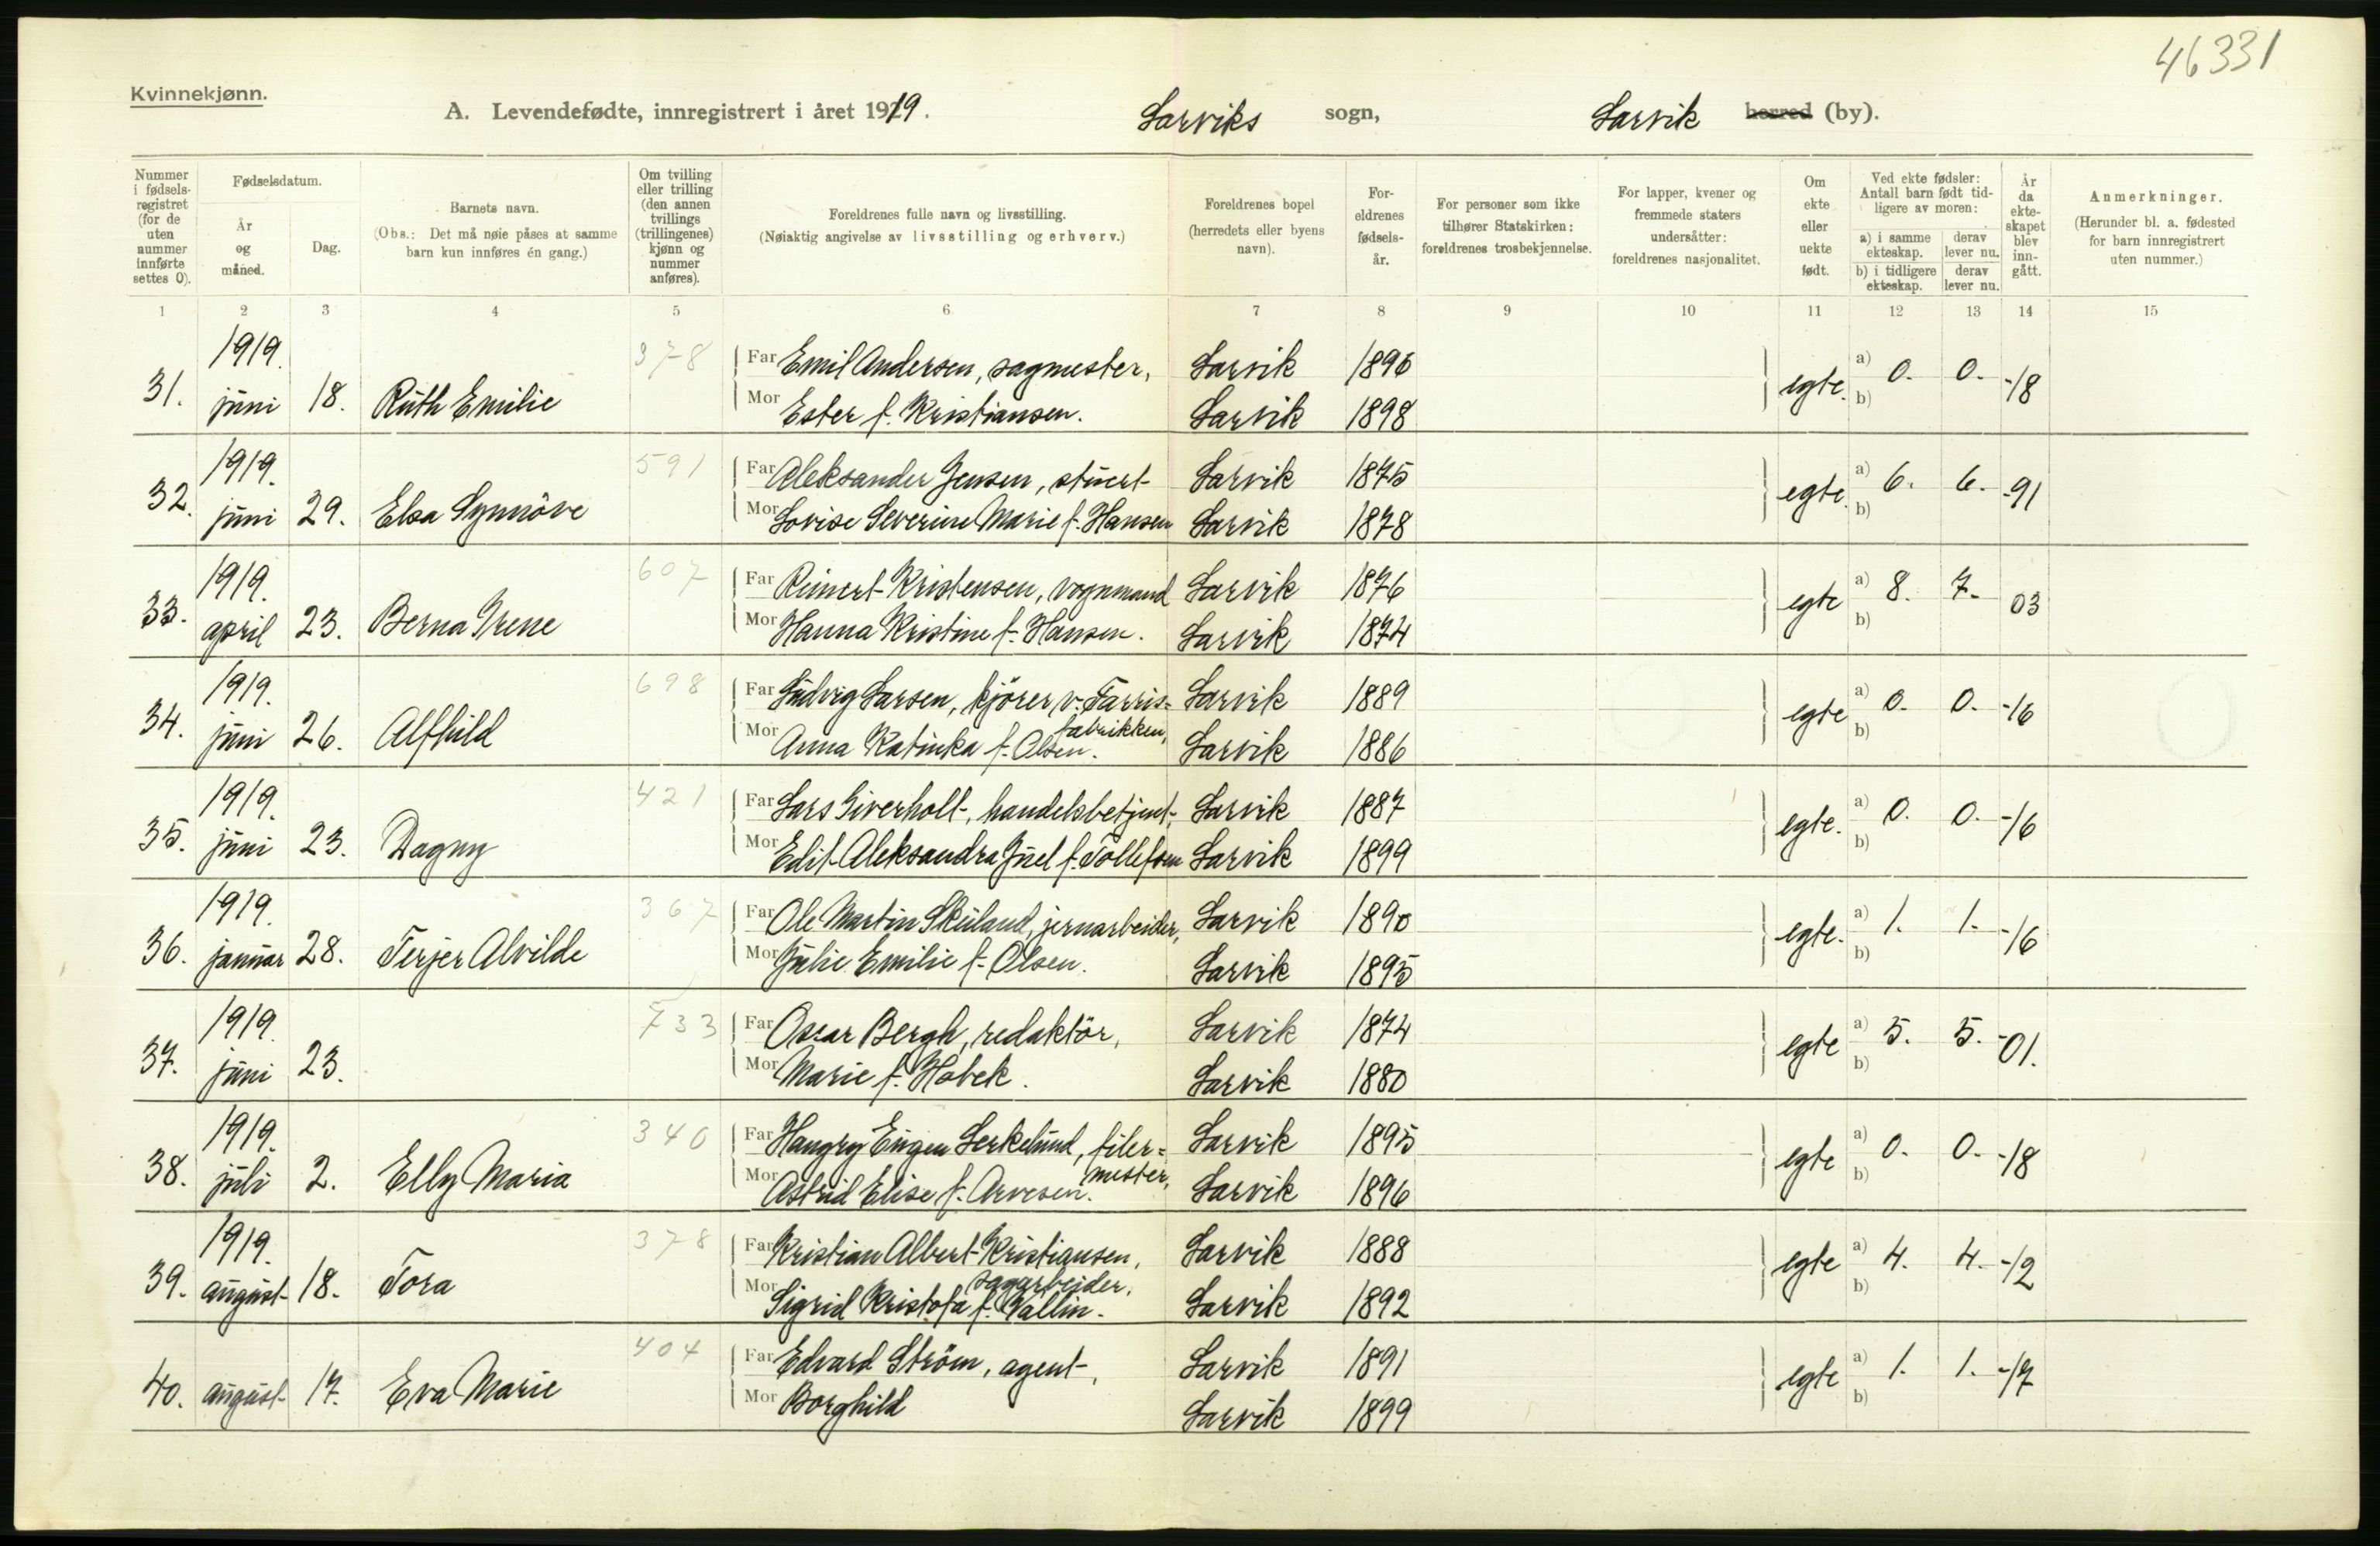 46331
Kvinnekjønn.
A. Levendefødte, innregistrert i året 1919. Larviks sogn, Larvik herred (by).
Nummer i fødsels-registret (for de uten nummer innførte settes 0).
Fødselsdatum.
År og måned.
Dag.
Barnets navn.
(Obs.: Det må nøie påses at samme barn kun innføres én gang.)
Om tvilling eller trilling (den annen tvillings (trillingenes) kjønn og nummer anføres).
Foreldrenes fulle navn og livsstilling.
(Nøiaktig angivelse av livsstilling og erhverv.)
Foreldrenes bopel (herredets eller byens navn).
For-eldrenes fødsels-år.
For personer som ikke tilhører Statskirken: foreldrenes trosbekjennelse.
For lapper, kvener og fremmede staters undersåtter: foreldrenes nasjonalitet.
Om ekte eller uekte født.
Ved ekte fødsler: Antall barn født tid-ligere av moren:
a) i samme ekteskap. derav lever nu.
b) i tidligere ekteskap. derav lever nu.
År da ekte-skapet blev inn-gått.
Anmerkninger.
(Herunder bl. a. fødested for barn innregistrert uten nummer.)
1 2 3 4 5 6 7 8 9 10 11 12 13 14 15
1919. 378 Far Emil Andersen, sagmester, Larvik 1896
31. juni 18. Ruth Emilie egte. a) 0. 0. -18 b)
Mor Ester f. Kristiansen. Larvik 1898
1919. 591 Far Aleksander Jensen, stuert Larvik 1875
32. juni 29. Elsa Synnöve egte. a) 6. 6. -91 b)
Mor Lovise Severine Marie f. Hansen Larvik 1878
1919. 607 Far Reinert Kristensen, vognmand Larvik 1876
33. april 23. Berna Irene egte a) 8. 7. 03 b)
Mor Hanna Kristine f. Hansen. Larvik 1874
1919. 698 Far Ludvig Larsen, kjörer v. Farris= Larvik 1889
fabrikken,
34. juni 26. Alfhild egte a) 0. 0. -16 b)
Mor Anna Katinka f. Olsen. Larvik 1886
1919. 421 Far Lars Siverholt, handelsbetjent, Larvik 1887
35. juni 23. Dagny egte. a) 0. 0. -16 b)
Mor Edit Aleksandra Juel f. Tollefsen Larvik 1899
1919. 367 Far Ole Martin Skuland, jernarbeider, Larvik 1890
36. januar 28. Terjer Alvilde egte. a) 1. 1. -16 b)
Mor Julie Emilie f. Olsen. Larvik 1895
1919. 733 Far Oscar Bergh, redaktör, Larvik 1874
37. juni 23. egte a) 5. 5. -01. b)
Mor Marie f. Hobek. Larvik 1880
1919. 340 Far Hangry Eugen Lerkelund, filer= Larvik 1895
mester,
38. juli 2. Elly Maria egte a) 0. 0. -18 b)
Mor Astrid Elise f. Arvesen. Larvik 1896
1919. 378 Far Kristian Albert Kristiansen, Larvik 1888
sagarbeider.
39. august 18. Tora egte a) 4. 4. -12 b)
Mor Sigrid Kristofa f. Vallin. Larvik 1892
404 Far Edvard Ström, agent, Larvik 1891
40. august 17. Eva Marie egte a) 1. 1. -17 b)
Mor Borghild Larvik 1899